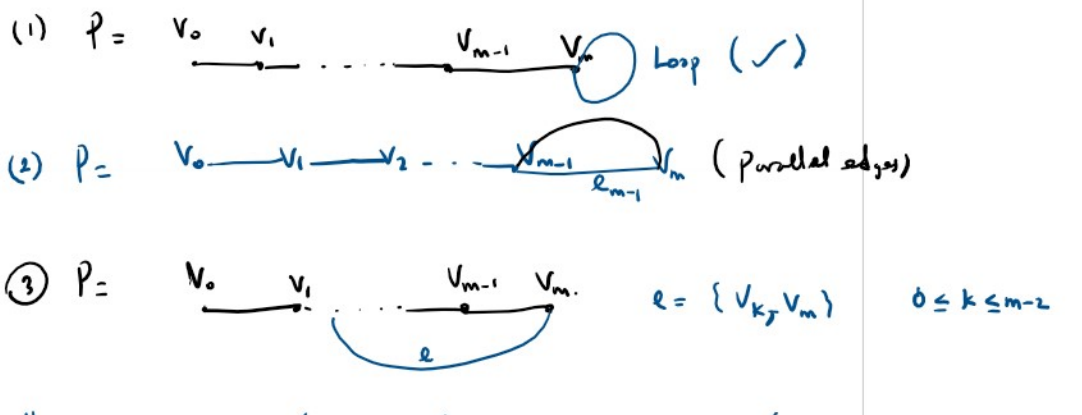 (1) P = V₀ V₁ . . . . . Vₘ₋₁ Vₘ Loop (✓)
(2) P = V₀ V₁ V₂ - . . . Vₘ₋₁ eₘ₋₁ Vₘ (Parallel edges)
③ P = V₀ V₁ . . . . Vₘ₋₁ Vₘ. e = {Vₖ, Vₘ} 0 ≤ k ≤ m-2
e